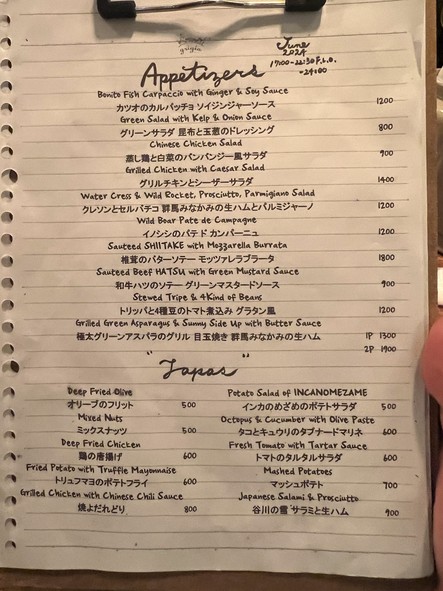 June
2024
Appetizers
17:00-22:30 F.L.O.
-24:00
Bonito Fish Carpaccio with Ginger & Soy Sauce
カツオのカルパッチョ ソイジンジャーソース 1200
Green Salad with Kelp & Onion Sauce
グリーンサラダ 昆布と玉葱のドレッシング 800
Chinese Chicken Salad
蒸し鶏と白菜のバンバンジー風サラダ 900
Grilled Chicken with Caesar Salad
グリルチキンとシーザーサラダ 1400
Water Cress & Wild Rocket, Prosciutto, Parmigiano Salad
クレソンとセルバチコ 群馬みなかみの生ハムとパルミジャーノ 1200
Wild Boar Pate de Campagne
イノシシのパテド カンパーニュ 1200
Sauteed SHIITAKE with Mozzarella Burrata
椎茸のバターソテー モッツァレラブラータ 1800
Sauteed Beef HATSU with Green Mustard Sauce
和牛ハツのソテー グリーンマスタードソース 900
Stewed Tripe & 4 Kind of Beans
トリッパと4種豆のトマト煮込み グラタン風 1200
Grilled Green Asparagus & Sunny Side Up with Butter Sauce
極太グリーンアスパラのグリル 目玉焼き 群馬みなかみの生ハム 1P 1300
2P 1900
"Tapas"
Deep Fried Olive
オリーブのフリット 500
Mixed Nuts
ミックスナッツ 500
Deep Fried Chicken
鶏の唐揚げ 600
Fried Potato with Truffle Mayonnaise
トリュフマヨのポテトフライ 600
Grilled Chicken with Chinese Chili Sauce
焼よだれどり 800
Potato Salad of INCANOMEZAME
インカのめざめのポテトサラダ 500
Octopus & Cucumber with Olive Paste
タコとキュウリのタプナードマリネ 600
Fresh Tomato with Tartar Sauce
トマトのタルタルサラダ 600
Mashed Potatoes
マッシュポテト 700
Japanese Salami & Prosciutto
谷川の雪 サラミと生ハム 900